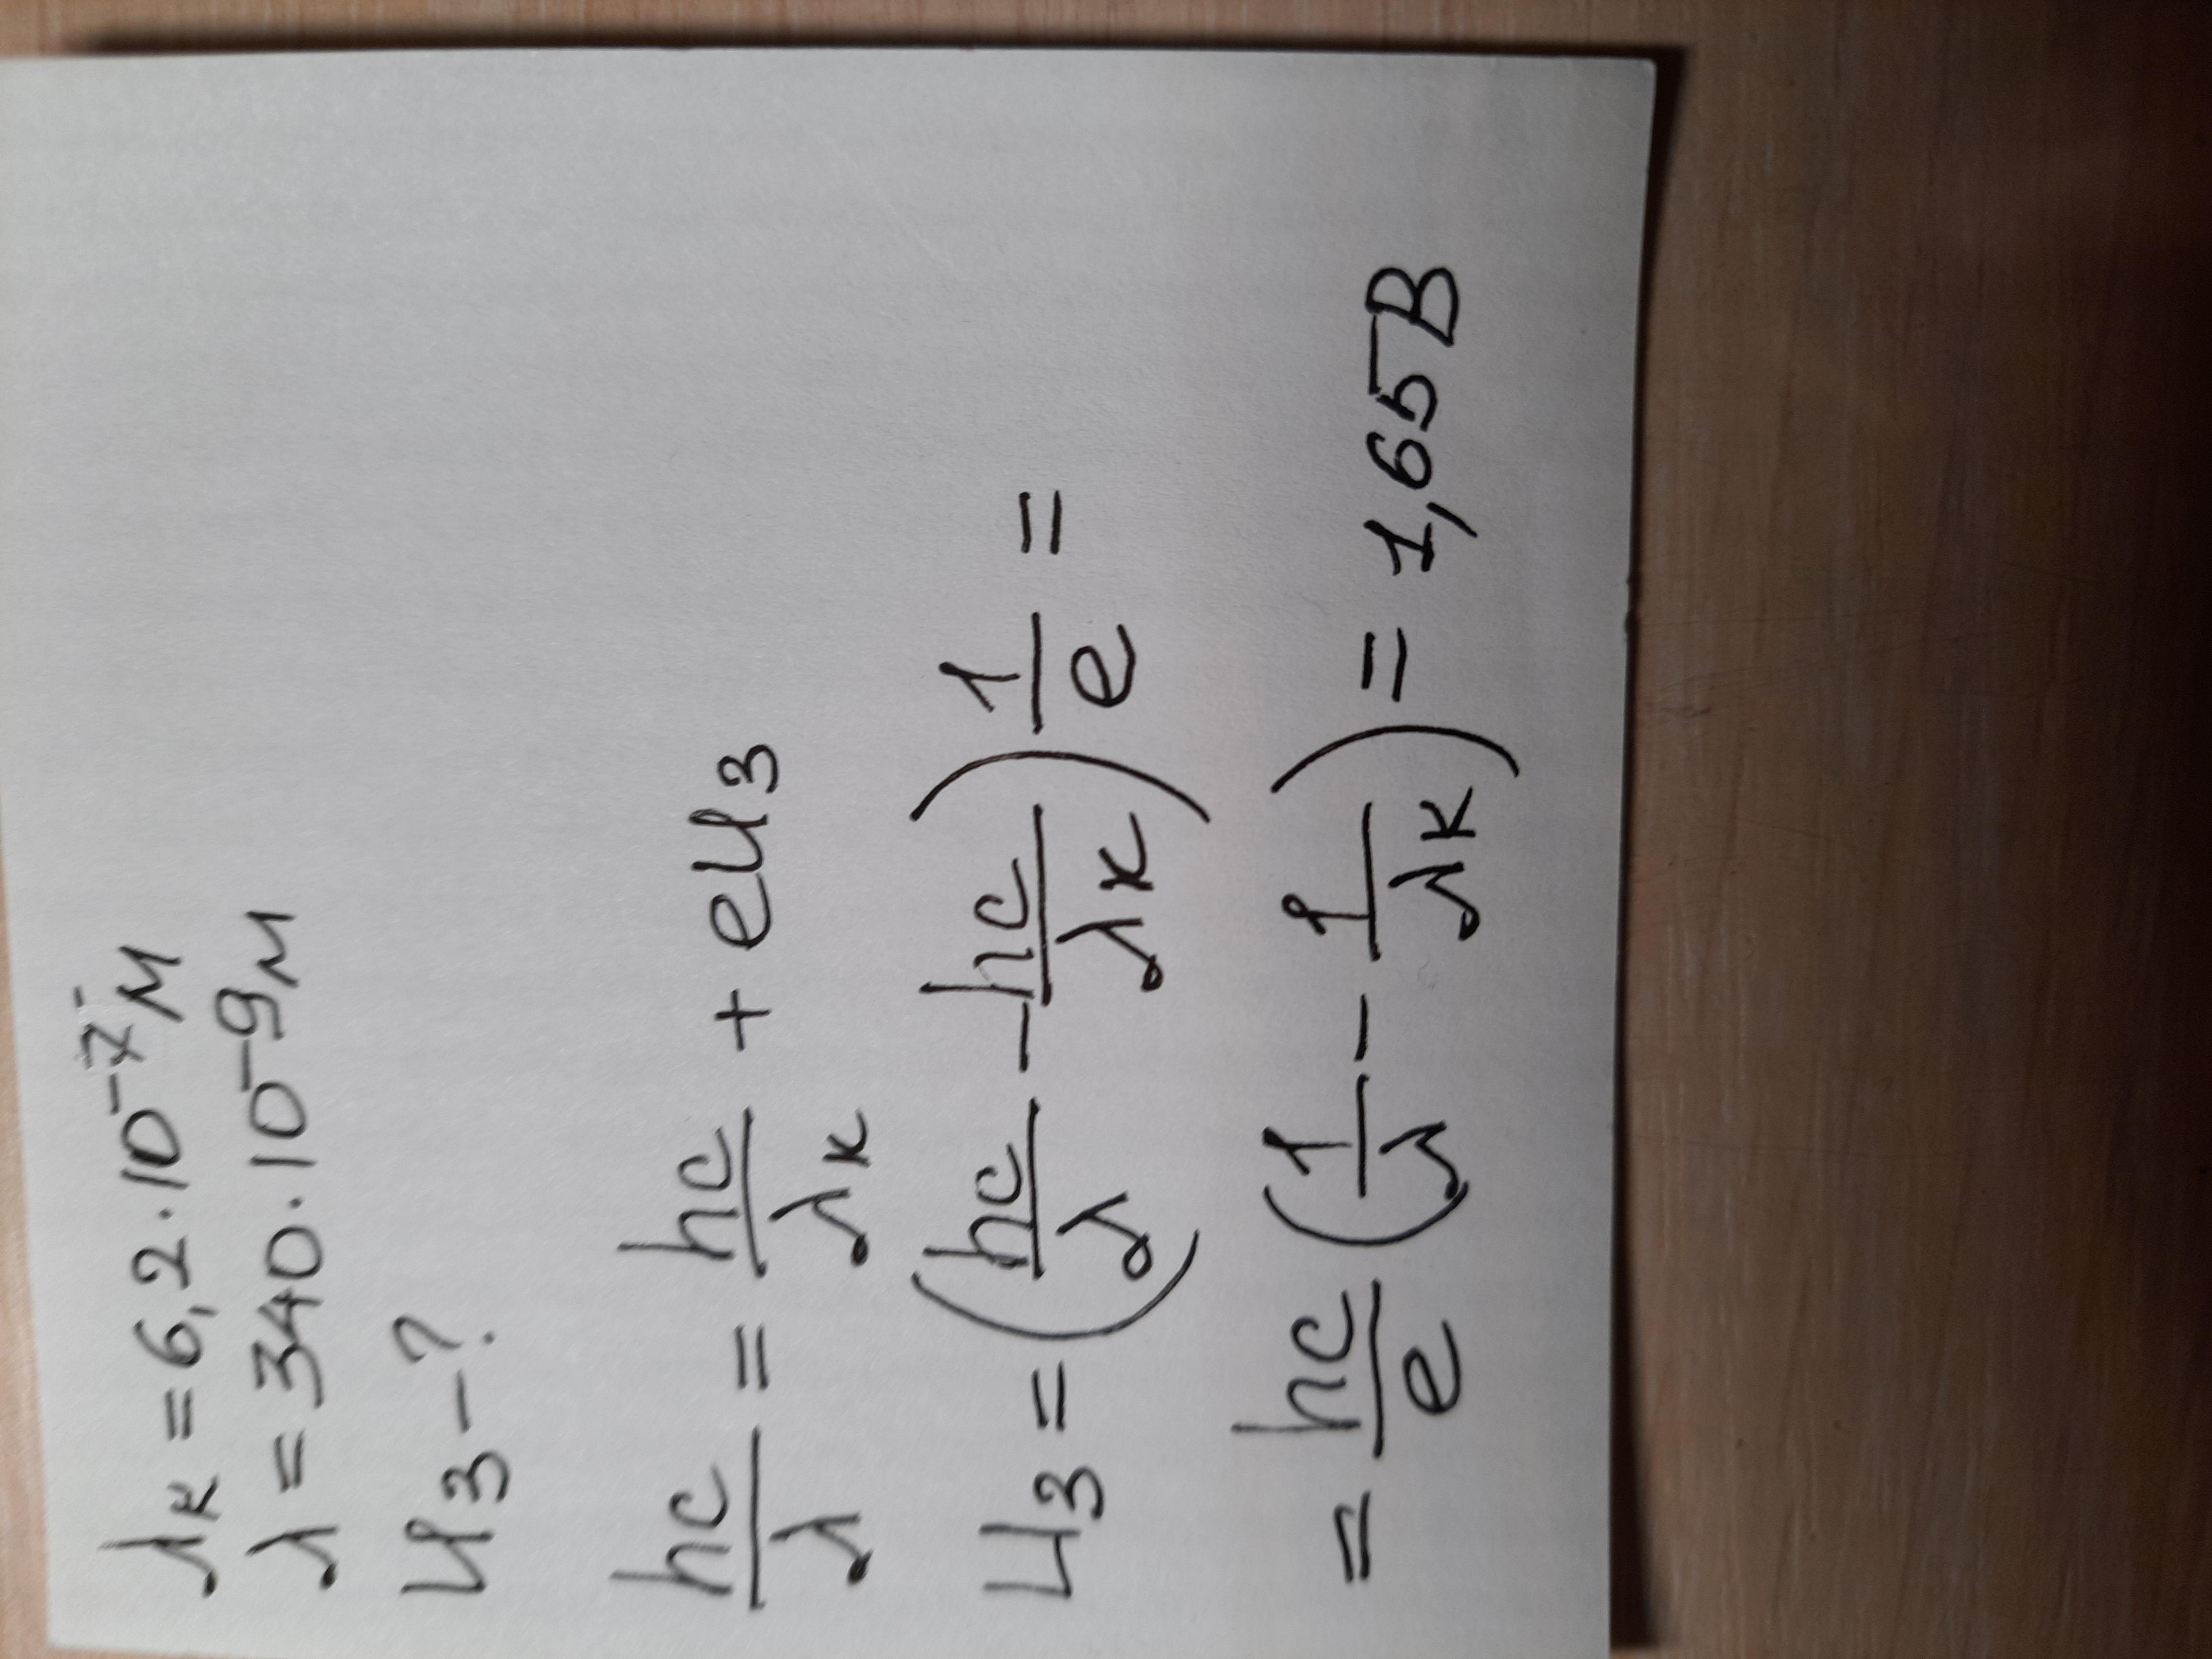 λк = 6,2·10⁻⁷м
λ = 340·10⁻⁹м
Uз - ?
hc/λ = hc/λк + eUз
Uз = (hc/λ - hc/λк) 1/e =
= hc/e (1/λ - 1/λк) = 1,65В